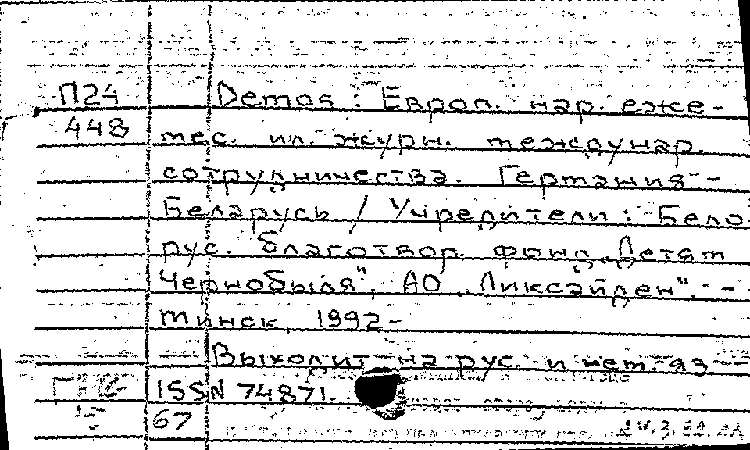 П24 Demos : Европ. нар. еже-
448 мес. ил. журн. междунар.
сотрудничества. Германия -
Беларусь / Учредители : Бело
рус. благотвор. фонд „Детям
Чернобыля", АО „Ликсайден". -
Минск, 1992-
Выходит на рус. и нем. яз. -
ISSN 74871.
67